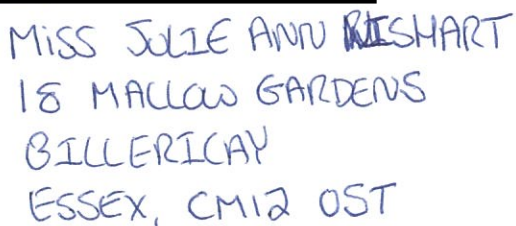 MISS JULIE ANN WISHART
18 MALLOW GARDENS
BILLERICAY
ESSEX, CM12 OST